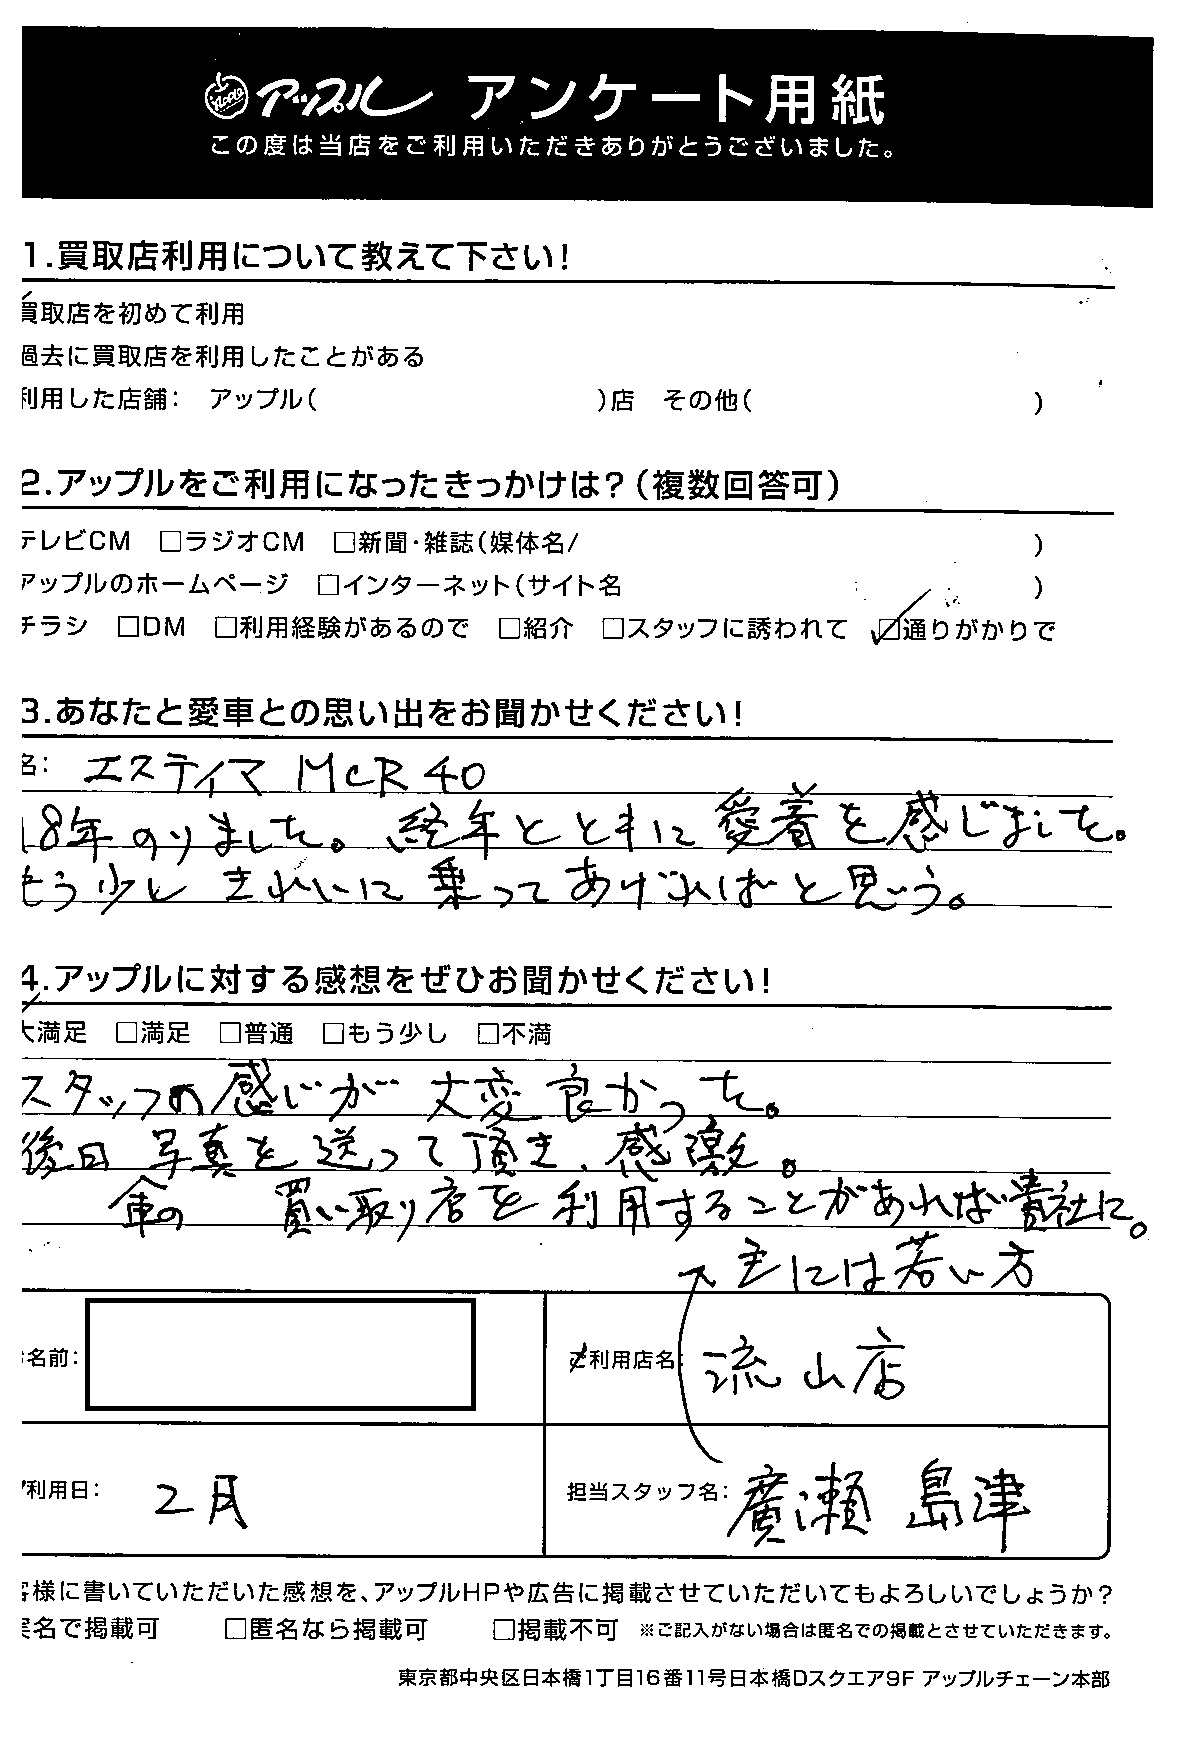 アップル アンケート用紙
この度は当店をご利用いただきありがとうございました。
1.買取店利用について教えて下さい!
買取店を初めて利用
過去に買取店を利用したことがある
利用した店舗: アップル( )店 その他( )
2.アップルをご利用になったきっかけは?(複数回答可)
テレビCM □ラジオCM □新聞・雑誌(媒体名/ )
アップルのホームページ □インターネット(サイト名 )
チラシ □DM □利用経験があるので □紹介 □スタッフに誘われて ☑通りがかりで
3.あなたと愛車との思い出をお聞かせください!
名: エスティマ MCR40
18年のりました。経年とともに愛着を感じました。
もう少しきれいに乗ってあげればと思う。
4.アップルに対する感想をぜひお聞かせください!
大満足 □満足 □普通 □もう少し □不満
スタッフの感じが大変良かった。
後日写真を送って頂き、感激。
車の 買い取り店を利用することがあれば貴社に。
主には若い方
名前:
ご利用店名: 流山店
利用日: 2月
担当スタッフ名: 廣瀬 島津
客様に書いていただいた感想を、アップルHPや広告に掲載させていただいてもよろしいでしょうか?
実名で掲載可 □匿名なら掲載可 □掲載不可 ※ご記入がない場合は匿名での掲載とさせていただきます。
東京都中央区日本橋1丁目16番11号日本橋Dスクエア9F アップルチェーン本部